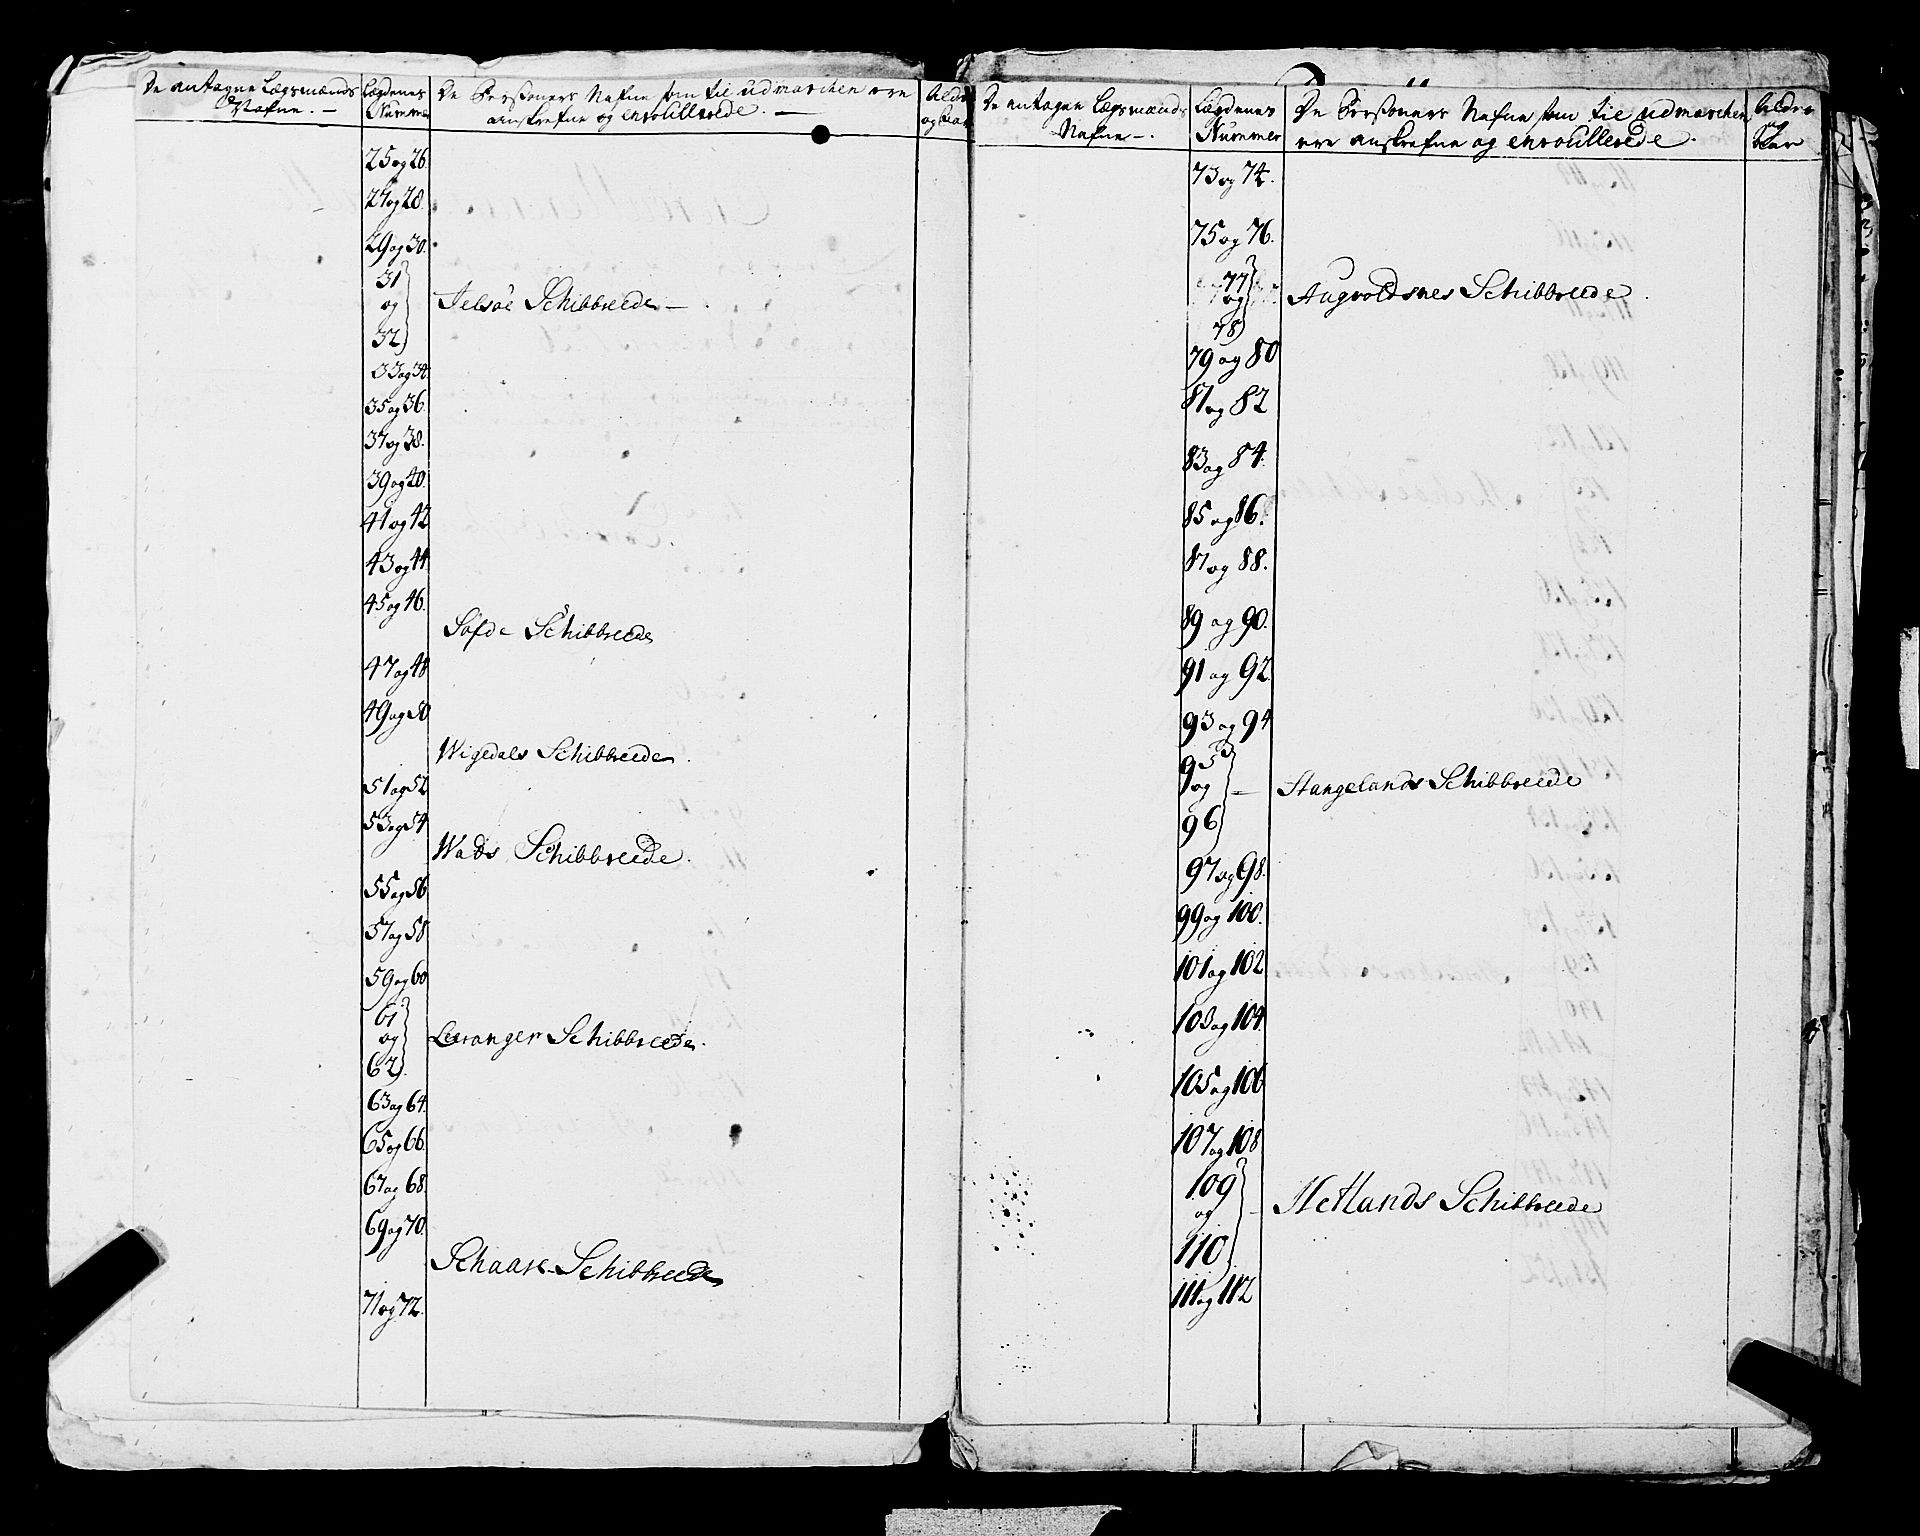 De antagne Lægsmænds
Nafne. —
Lægdenes
Nummer
De Persohners Nafne som til udmarschen ere
anskrefne og enroullerede. —
Alder
og
25 og 26.
27 og 28.
29 og 30.
31
og
32
Jelsöe Schibbreede —
33 og 34.
35 og 36.
37 og 38.
39 og 40.
41 og 42
43 og 44
45 og 46.
Söfde Schibbreede
47 og 48
49 og 50
Wigedals Schibbreede.
51 og 52
53 og 54
Wads Schibbreede.
55 og 56
57 og 58
59 og 60
61
og
62
Leranger Schibbreede.
63 og 64.
65 og 66.
67 og 68.
69 og 70.
Schaare Schibbreede
71 og 72.
De antagne Lægsmænds
Nafne —.
Lægdenes
Nummer
De Persohners Nafne som til udmarschen
ere anskrefne og enroullerede.
Alder
og
73 og 74.
75 og 76.
77
og
78
Augvoldsnes Schibbreede.
79 og 80
81 og 82
83 og 84.
85 og 86.
87 og 88.
89 og 90.
91 og 92.
93 og 94
95
og
96
— Stangelands Schibbreede
97 og 98.
99 og 100.
101 og 102
103 og 104
105 og 106
107 og 108
109
og
110
— Hetlands Schibbreede
111 og 112